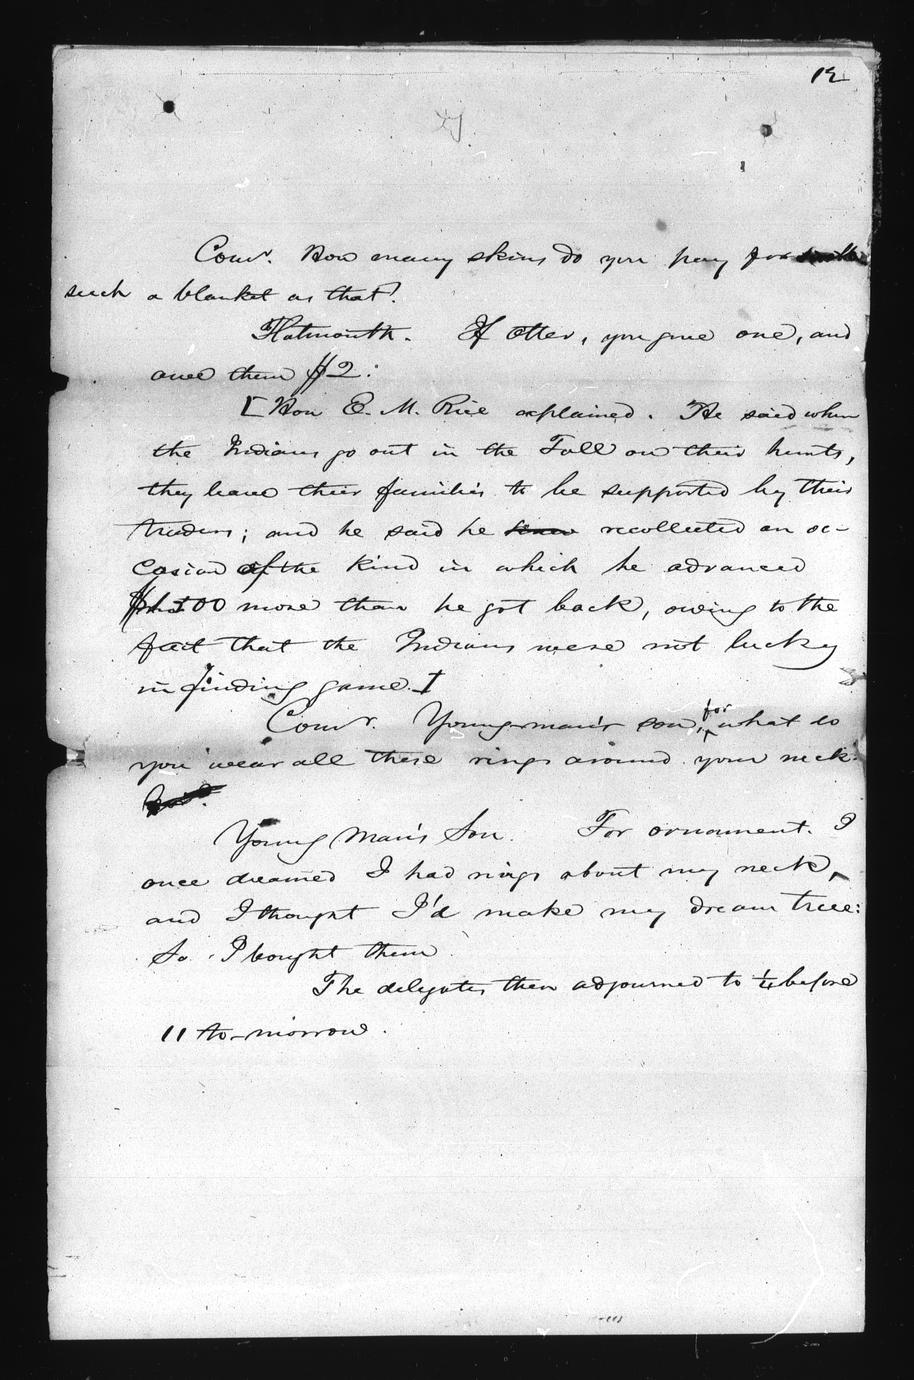 12
Comr. How many skins do you pay for
such a blanket as that?
Flatmouth. If Otter, you give one, and
over them $2.
[Hon E. M. Rice explained. He said when
the Indians go out in the Fall on their hunts,
they leave their families to be supported by their
traders; and he said he recollected an oc-
casion of the kind in which he advanced
more than he got back, owing to the
fact that the Indians were not lucky
in finding game.]
Comr. Youngman's son, for what do
you wear all these rings around your neck?
Young Man's Son. For ornament. I
once dreamed I had rings about my neck,
and I thought I'd make my dream true:
So I bought them.
The delegates then adjourned to ¼ before
11 to-morrow.